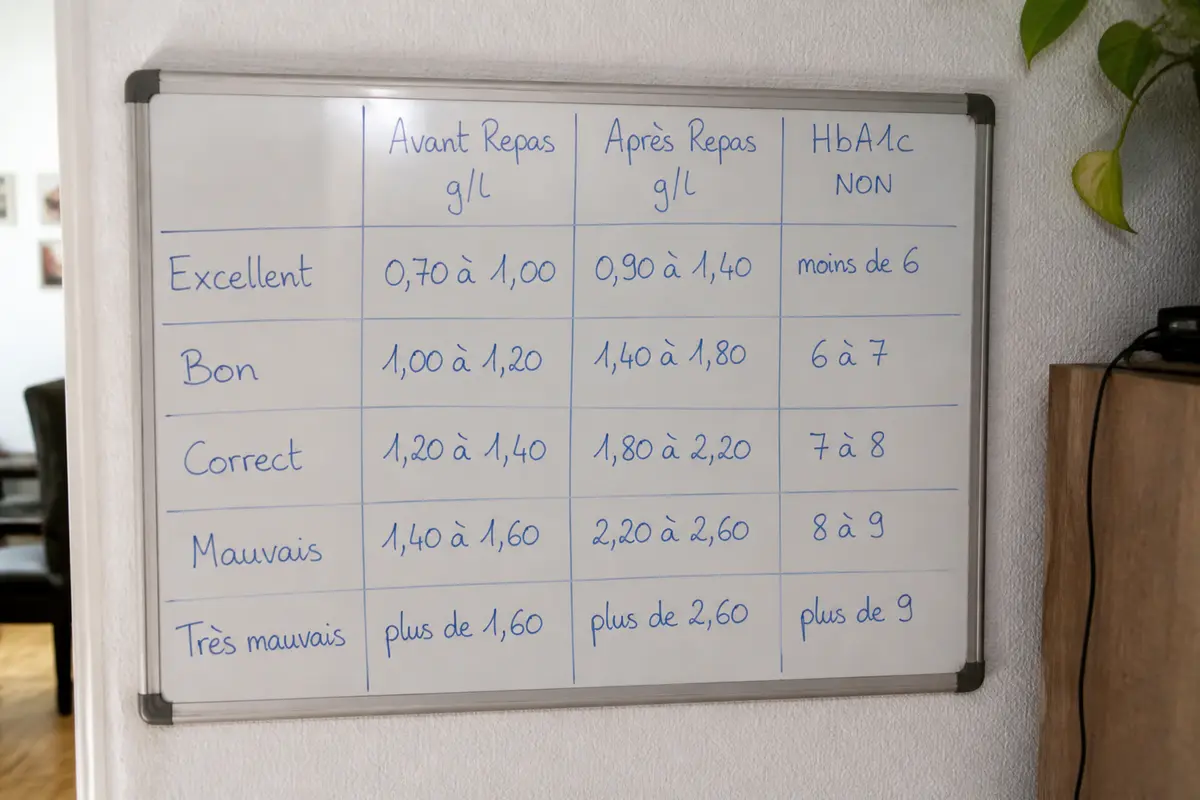 Avant Repas Après Repas HbA1c
g/l g/l NON
Excellent 0,70 à 1,00 0,90 à 1,40 moins de 6
Bon 1,00 à 1,20 1,40 à 1,80 6 à 7
Correct 1,20 à 1,40 1,80 à 2,20 7 à 8
Mauvais 1,40 à 1,60 2,20 à 2,60 8 à 9
Très mauvais plus de 1,60 plus de 2,60 plus de 9